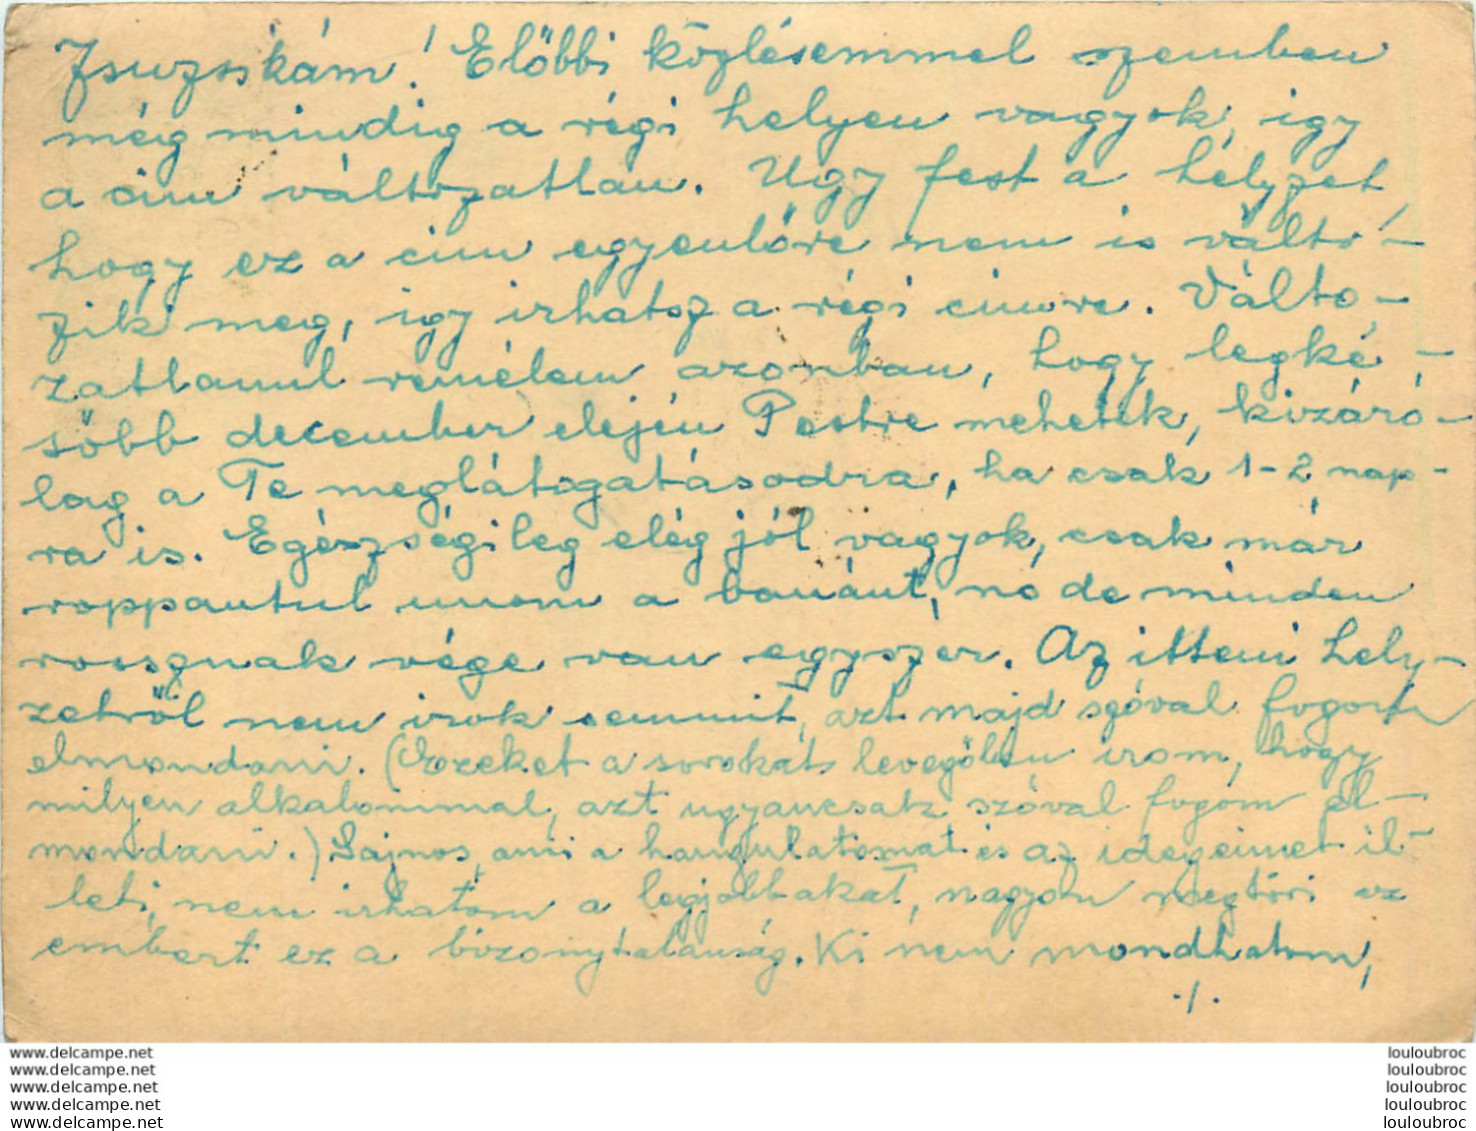 Zsuzsikám! Előbbi közlésemmel szemben
még mindig a régi helyen vagyok, igy
a cim változatlan. Ugy fest a helyzet,
hogy ez a cim egyenlőre nem isválto-
zik meg, igy irhatsz a régi cimre. Válto-
zatlanul remélem azonban, hogy legké-
sőbb december elején Pestre mehetek, kizáró-
lag a Te meglátogatásodra, ha csak 1-2 nap-
ra is. Egészségileg elég jól vagyok, csak már
roppantul unom a banánt, no de minden
rossznak vége van egyszer. Az itteni hely-
zetről nem irok semmit, azt majd szóval fogom
elmondani. (Ezeket a sorokat levegőben irom, hogy
milyen alkalommal, azt ugyancsak szóval fogom el-
mondani.) Sajnos, ami a hangulatomat és az idegeimet il-
leti, nem irhatom a legjobbakat, nagyon megtöri az
embert ez a bizonytalanság. Ki nem mondhatom,
./.
www.delcampe.net
www.delcampe.net
www.delcampe.net
www.delcampe.net
www.delcampe.net
louloubroc
louloubroc
louloubroc
louloubroc
louloubroc